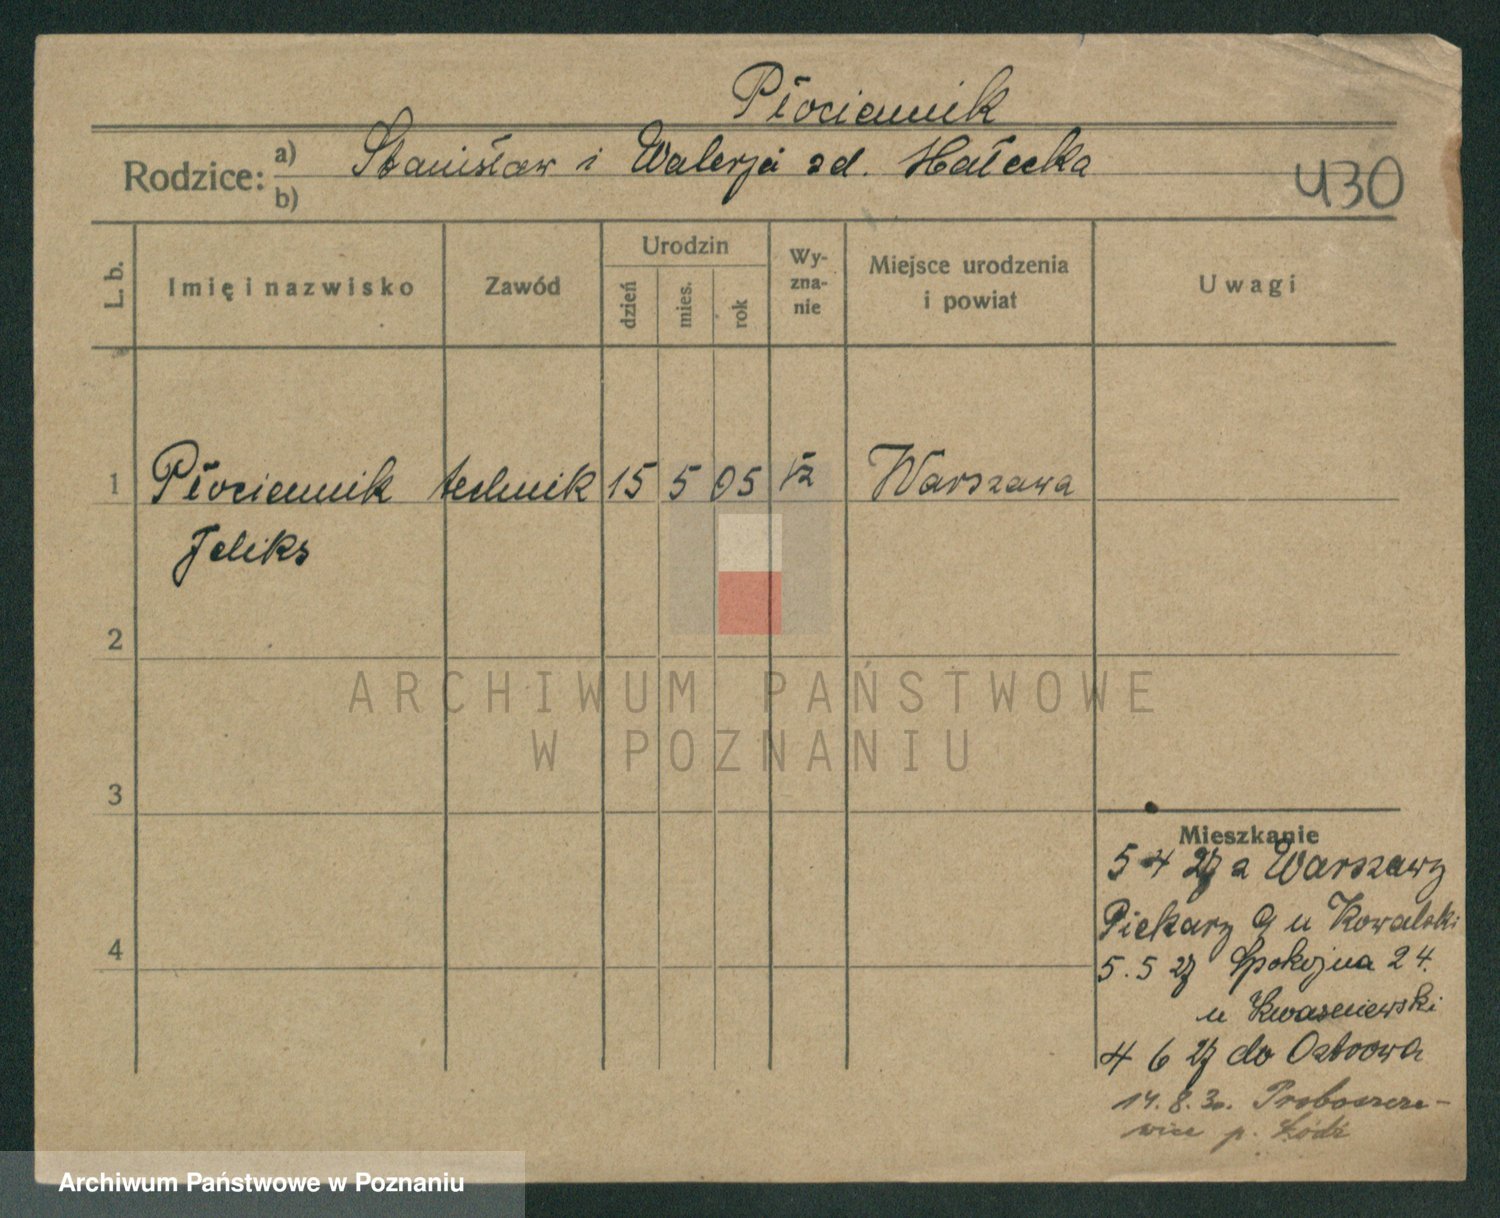 Płóciennik
Rodzice: a) Stanisław i Walerja zd. Hałecka
b)
430
L. b.
Imię i nazwisko
Zawód
Urodzin
dzień
mies.
rok
Wy-
zna-
nie
Miejsce urodzenia
i powiat
Uwagi
1 Płóciennik technik 15 5 05 rz Warszawa
Feliks
2
ARCHIWUM PAŃSTWOWE
W POZNANIU
3
Mieszkanie
5 4 27 z Warszawy
Piekary 9 u Kowalski
4
5.5 27 Spokojna 24.
u Kwaśniewski
4 6 27 do Ostrowa
14. 8. 30. Proboszcze-
wice p. Łódź
Archiwum Państwowe w Poznaniu